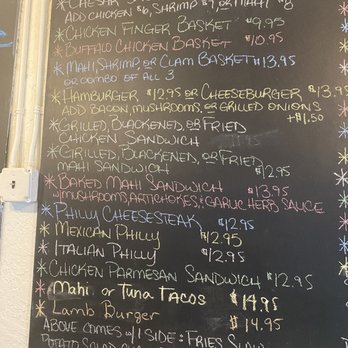 * CAESAR
ADD CHICKEN $6, SHRIMP $9, OR MAHI $8
* CHICKEN FINGER BASKET $9.95
* BUFFALO CHICKEN BASKET $10.95
* MAHI, SHRIMP, OR CLAM BASKET $13.95
OR COMBO OF ALL 3
* HAMBURGER $12.95 OR CHEESEBURGER $13.95
ADD BACON, MUSHROOMS, OR GRILLED ONIONS
+$1.50
* GRILLED, BLACKENED, OR FRIED
CHICKEN SANDWICH
* GRILLED, BLACKENED, OR FRIED
MAHI SANDWICH $12.95
* BAKED MAHI SANDWICH $13.95
W/MUSHROOMS, ARTICHOKES, & GARLIC HERB SAUCE
* PHILLY CHEESESTEAK $12.95
* MEXICAN PHILLY $12.95
* ITALIAN PHILLY $12.95
* CHICKEN PARMESAN SANDWICH $12.95
* Mahi or Tuna TACOS $14.95
* Lamb Burger $14.95
ABOVE COMES W/1 SIDE: FRIES, SLAW,
POTATO SALAD